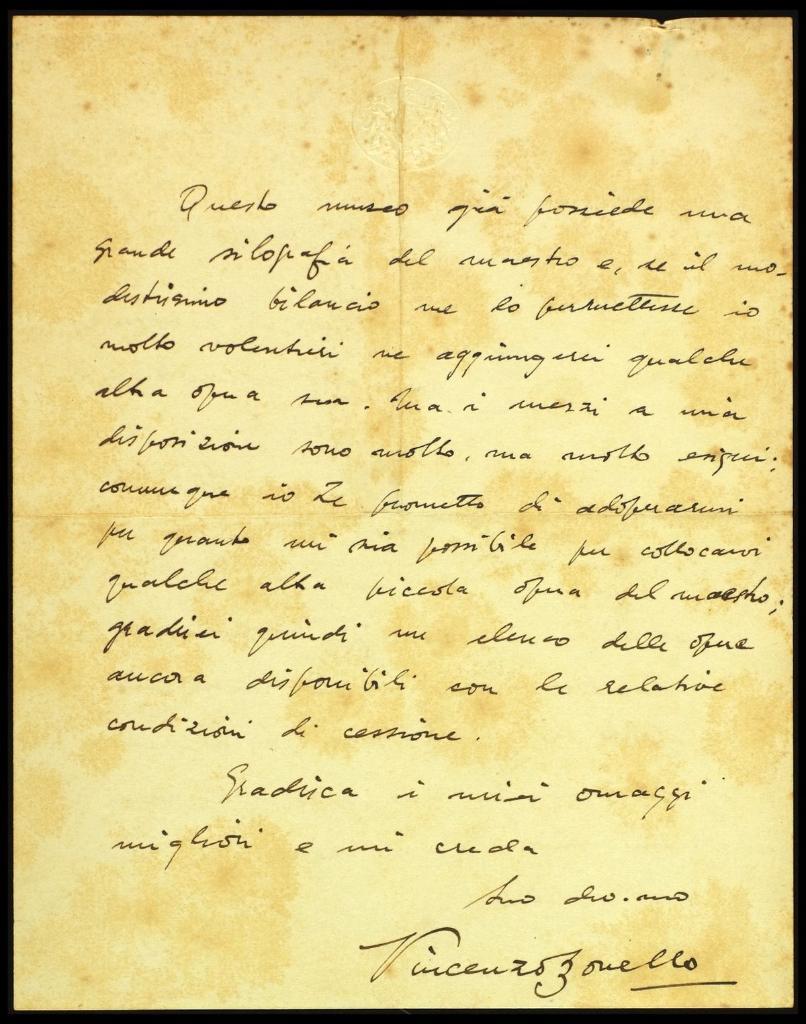 Questo museo già possiede una
grande silografia del maestro e, se il mo-
destissimo bilancio me lo permettesse io
molto volentieri ne aggiungerei qualche
altra opera sua. Ma i mezzi a mia
disposizione sono molto, ma molto esigui;
comunque io Le prometto di adoperarmi
per quanto mi sia possibile per collocarvi
qualche altra piccola opera del maestro;
gradirei quindi un elenco delle opere
ancora disponibili con le relative
condizioni di cessione.
Gradisca i miei omaggi
migliori e mi creda
Suo dev.mo
Vincenzo Bonello